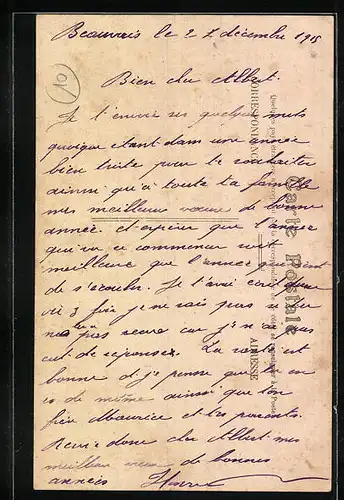 Beauvais le 22 décembre 1915
10
Bien cher Albert.
Je t'envoie ses quelques mots
quoique etant dans une année
bien triste pour te souhaiter
ainsi qu'à toute ta famille
mes meilleurs vœux de bonne
année et espérer que l'année
qui va ce commencer soit
meilleure que l'année qui vient
de s'écouler. Je t'avai écrit
3 fois je ne sais pas si tu
pas car je n'ai pas
eut de reponses. La santé est
bonne et je pense que tu en
es de même ainsi que ton
Maurice et tes parents.
Reçois donc cher Albert mes
meilleurs vœux de bonnes
années
Carte Postale
CORRESPONDANCE
ADRESSE